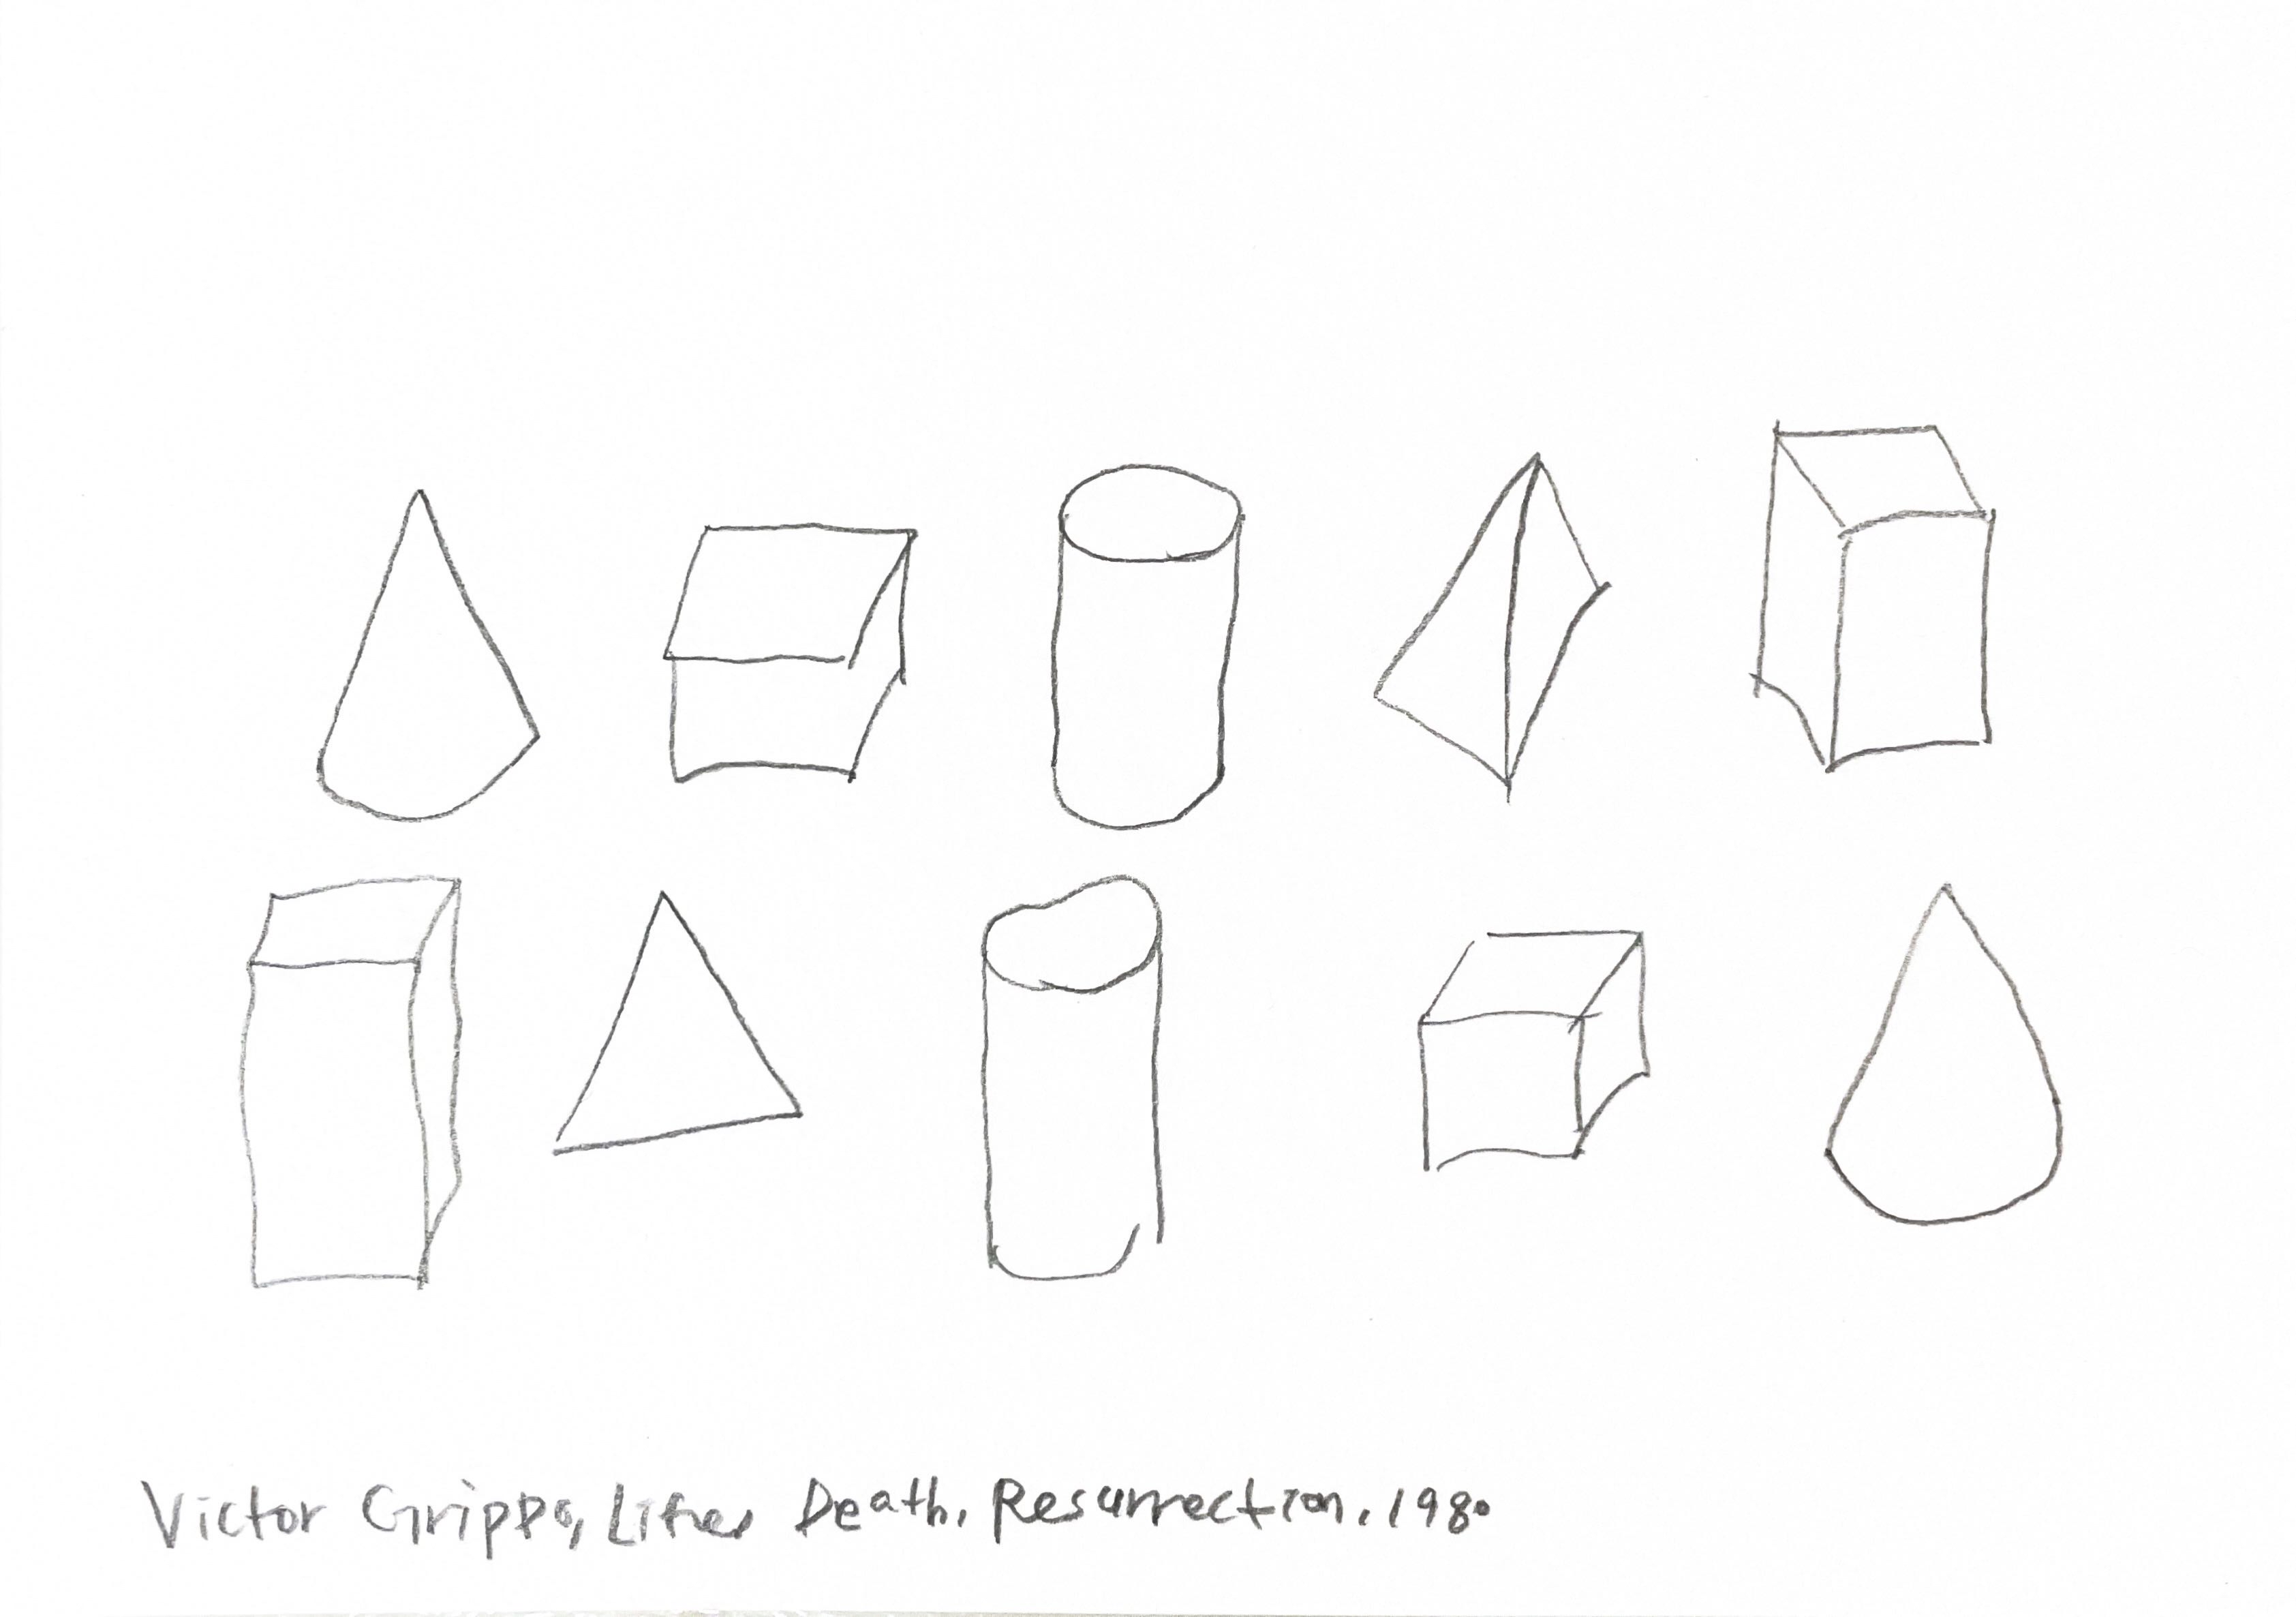 Victor Grippo, Life, Death, Resurrection, 1980